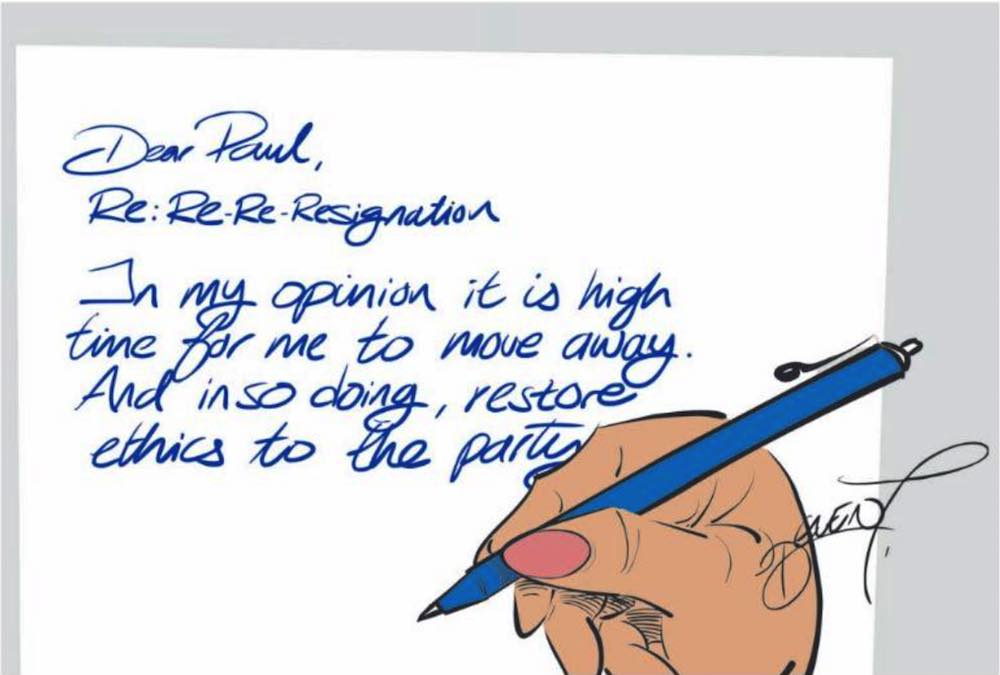 Dear Paul,
Re: Re-Re-Resignation
In my opinion it is high
time for me to move away.
And in so doing, restore
ethics to the party
Deven T.